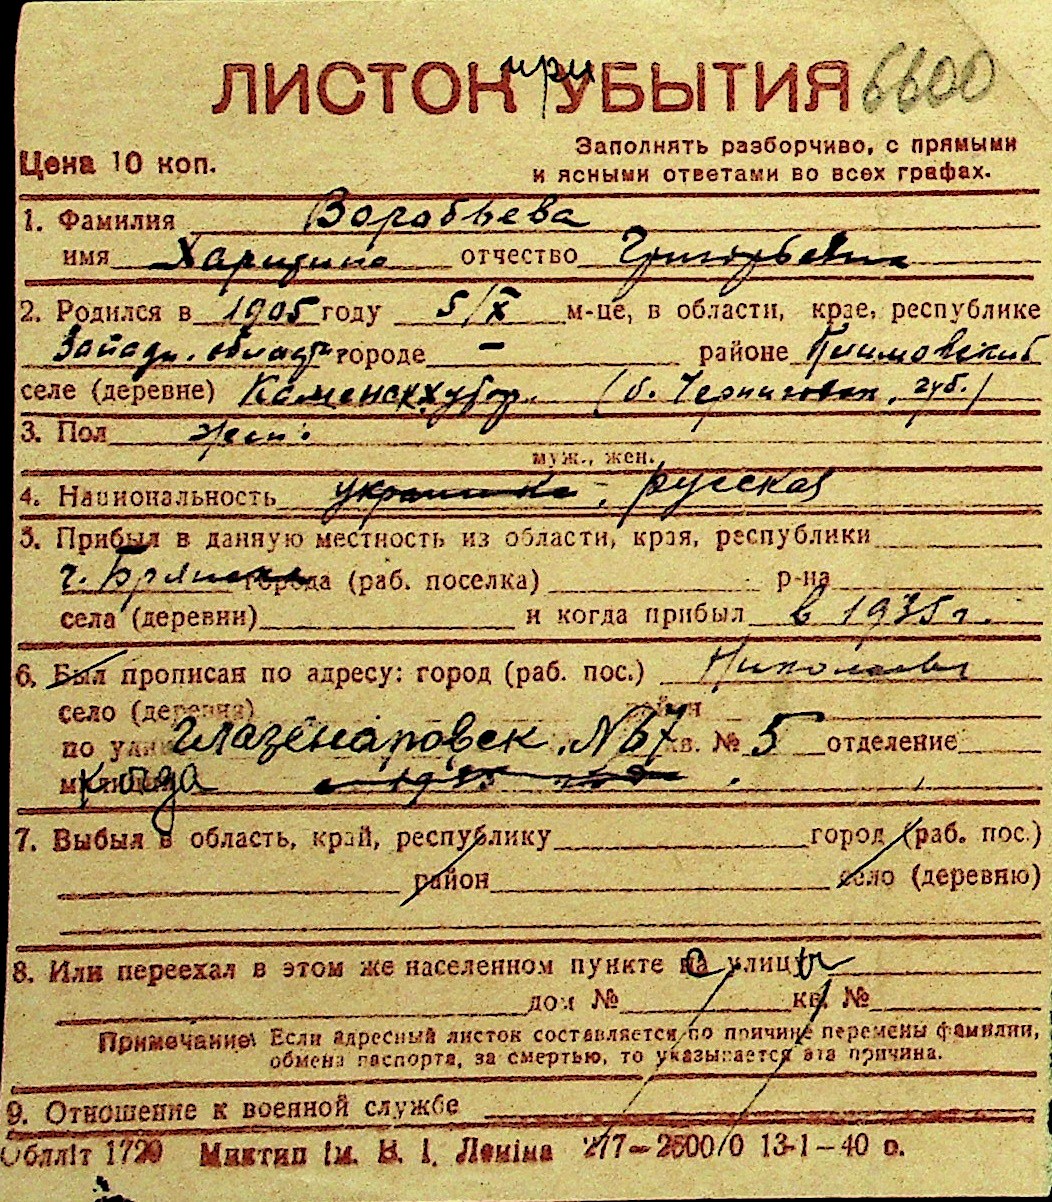 ЛИСТОК при УБЫТИЯ 6600
Цена 10 коп.
Заполнять разборчиво, с прямыми
и ясными ответами во всех графах.
1. Фамилия Воробьева
имя Харитина отчество Григорьевна
2. Родился в 1905 году 5/X м-це, в области, крае, республике
Западн. област городе — районе Климовский
селе (деревне) Каменскхутор (б. Чернигов. губ.)
3. Пол жен.
муж., жен.
4. Национальность украинка, русская
5. Прибыл в данную местность из области, края, республики
г. Брянска города (раб. поселка) р-на
села (деревни) и когда прибыл в 1935 г.
6. Был прописан по адресу: город (раб. пос.) Николаев
село (деревня) район
по улице Глазенаповск. № 67 кв. № 5 отделение
милиции когда 1935
7. Выбыл в область, край, республику город (раб. пос.)
район село (деревню)
8. Или переехал в этом же населенном пункте на улицу с ы
дом № кв. №
Примечание: Если адресный листок составляется по причине перемены фамилии,
обмена паспорта, за смертью, то указывается эта причина.
9. Отношение к военной службе
Обллiт 1729 Миктип iм. В. I. Ленiна 277—2500/0 13-1—40 р.